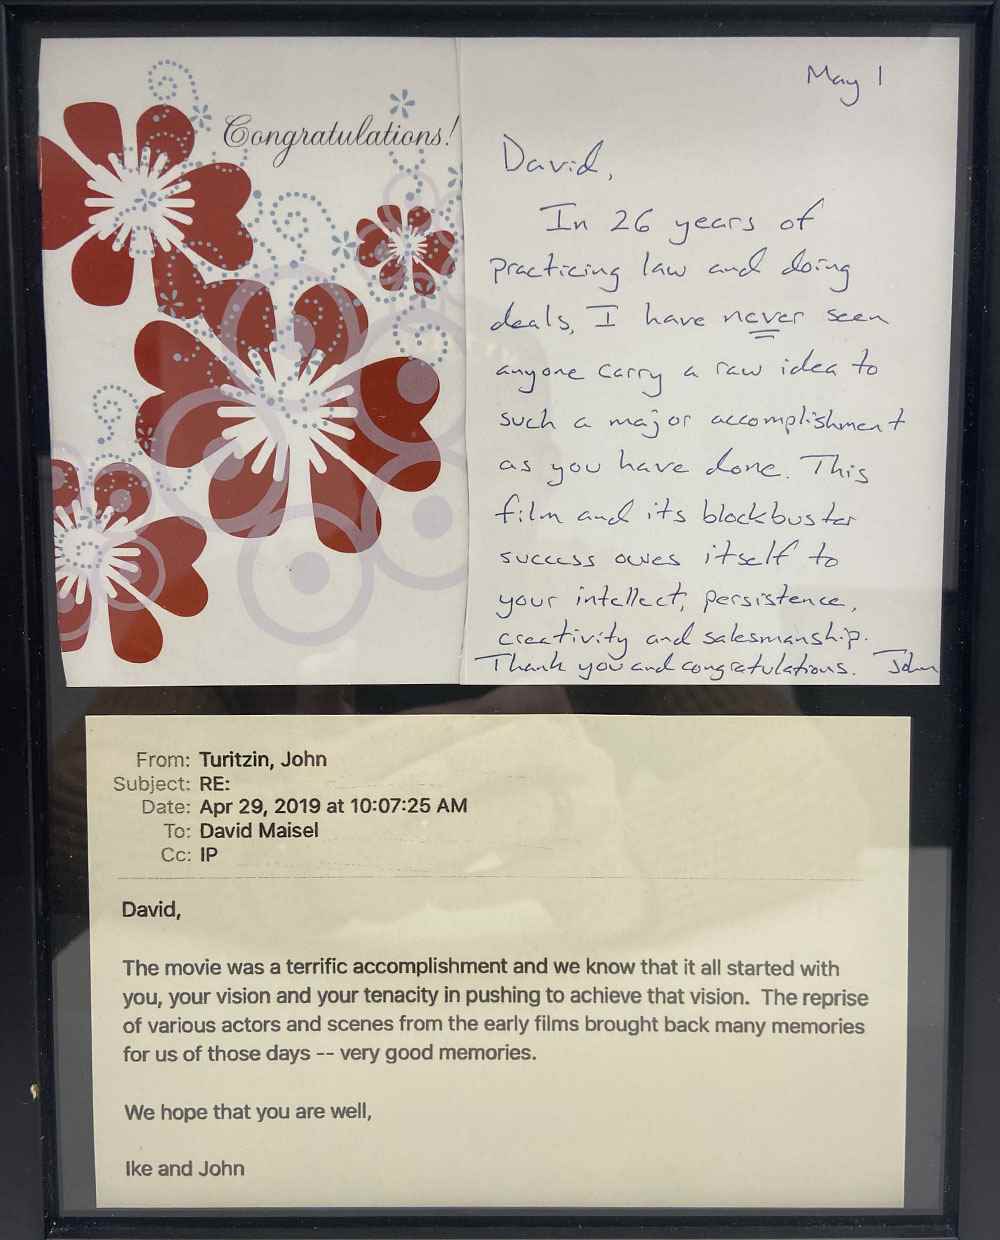 Congratulations!
May 1
David,
In 26 years of
practicing law and doing
deals, I have never seen
anyone carry a raw idea to
such a major accomplishment
as you have done. This
film and its blockbuster
success owes itself to
your intellect, persistence,
creativity and salesmanship.
Thank you and congratulations. John
From: Turitzin, John
Subject: RE:
Date: Apr 29, 2019 at 10:07:25 AM
To: David Maisel
Cc: IP
David,
The movie was a terrific accomplishment and we know that it all started with
you, your vision and your tenacity in pushing to achieve that vision.  The reprise
of various actors and scenes from the early films brought back many memories
for us of those days -- very good memories.
We hope that you are well,
Ike and John